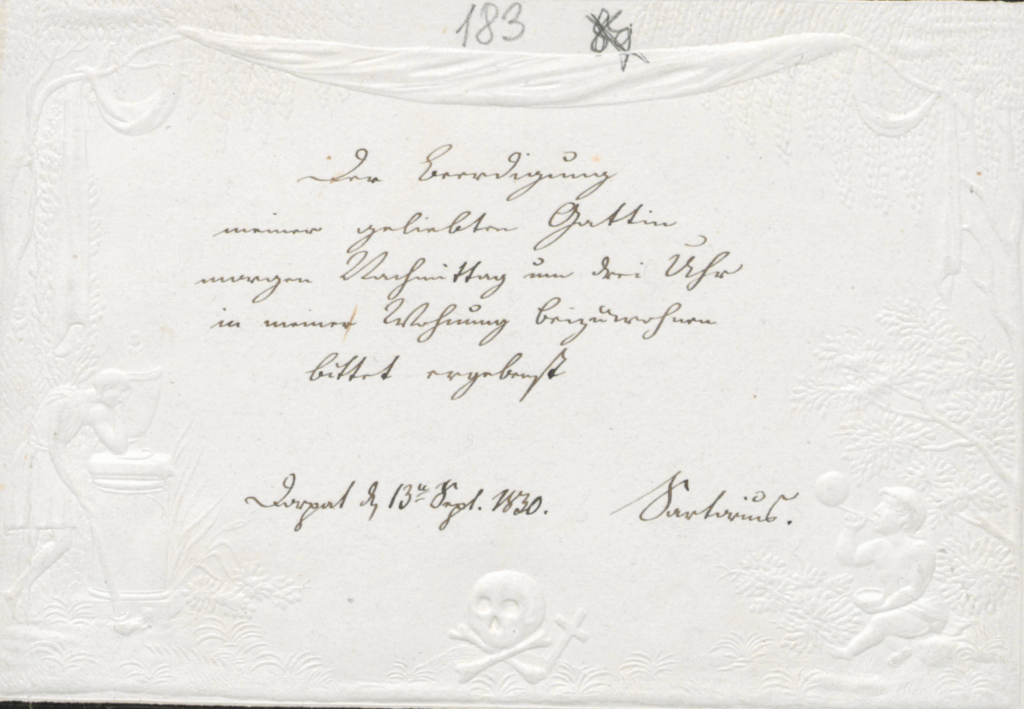 183
Der Beerdigung
meiner geliebten Gattin
morgen Nachmittag um drei Uhr
in meiner Wohnung beizuwohnen
bittet ergebenst
Dorpat d. 13n Sept. 1830. Sartorius.